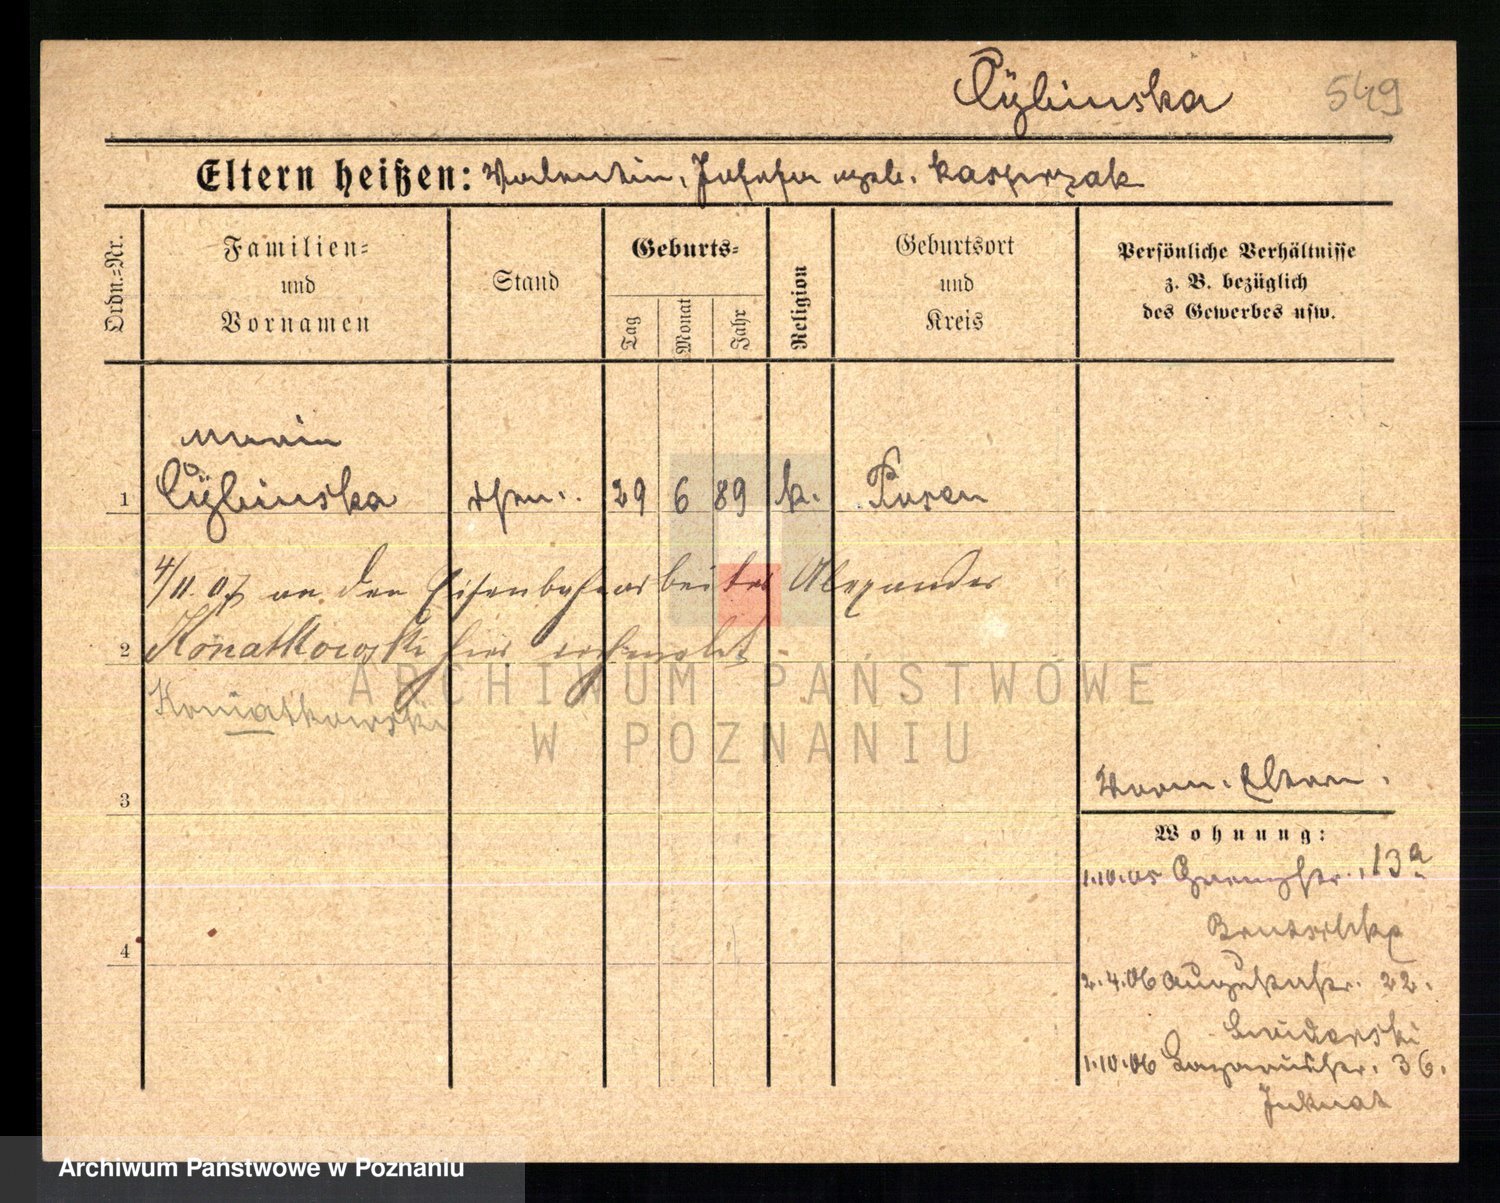 Cÿbinska 549
Eltern heißen: Valentin, Josefa geb. Kasprzak
Ordn.=Nr.
Familien=
und
Vornamen
Stand
Geburts=
Tag
Monat
Jahr
Religion
Geburtsort
und
Kreis
Persönliche Verhältnisse
z. B. bezüglich
des Gewerbes usw.
Maria
1 Cÿbinska 29 6 89 k. Posen
4/11. 07 an den Eisenbahnarbeiter Alexander
2 Konatkowski hier verheiratet
Koniatkowski
ARCHIWUM PAŃSTWOWE
W POZNANIU
3
Eltern.
Wohnung:
1.10.05 13a
4
2.4.06 Augustastr. 22.
Swiderski
1.10.06 Lazarusstr. 36.
Archiwum Państwowe w Poznaniu